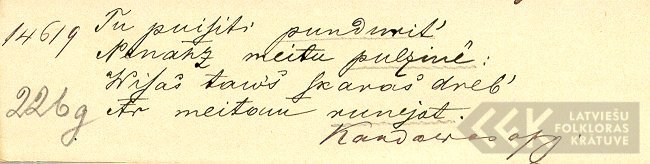 14619 Tu puisīti pundurīt'
Nenahz meitu pulziņê:
Wisas tawas skaras dreb'
226g Ar meitam runejot.
Kandawas apg.
LATVIEŠU
FOLKLORAS
KRĀTUVE